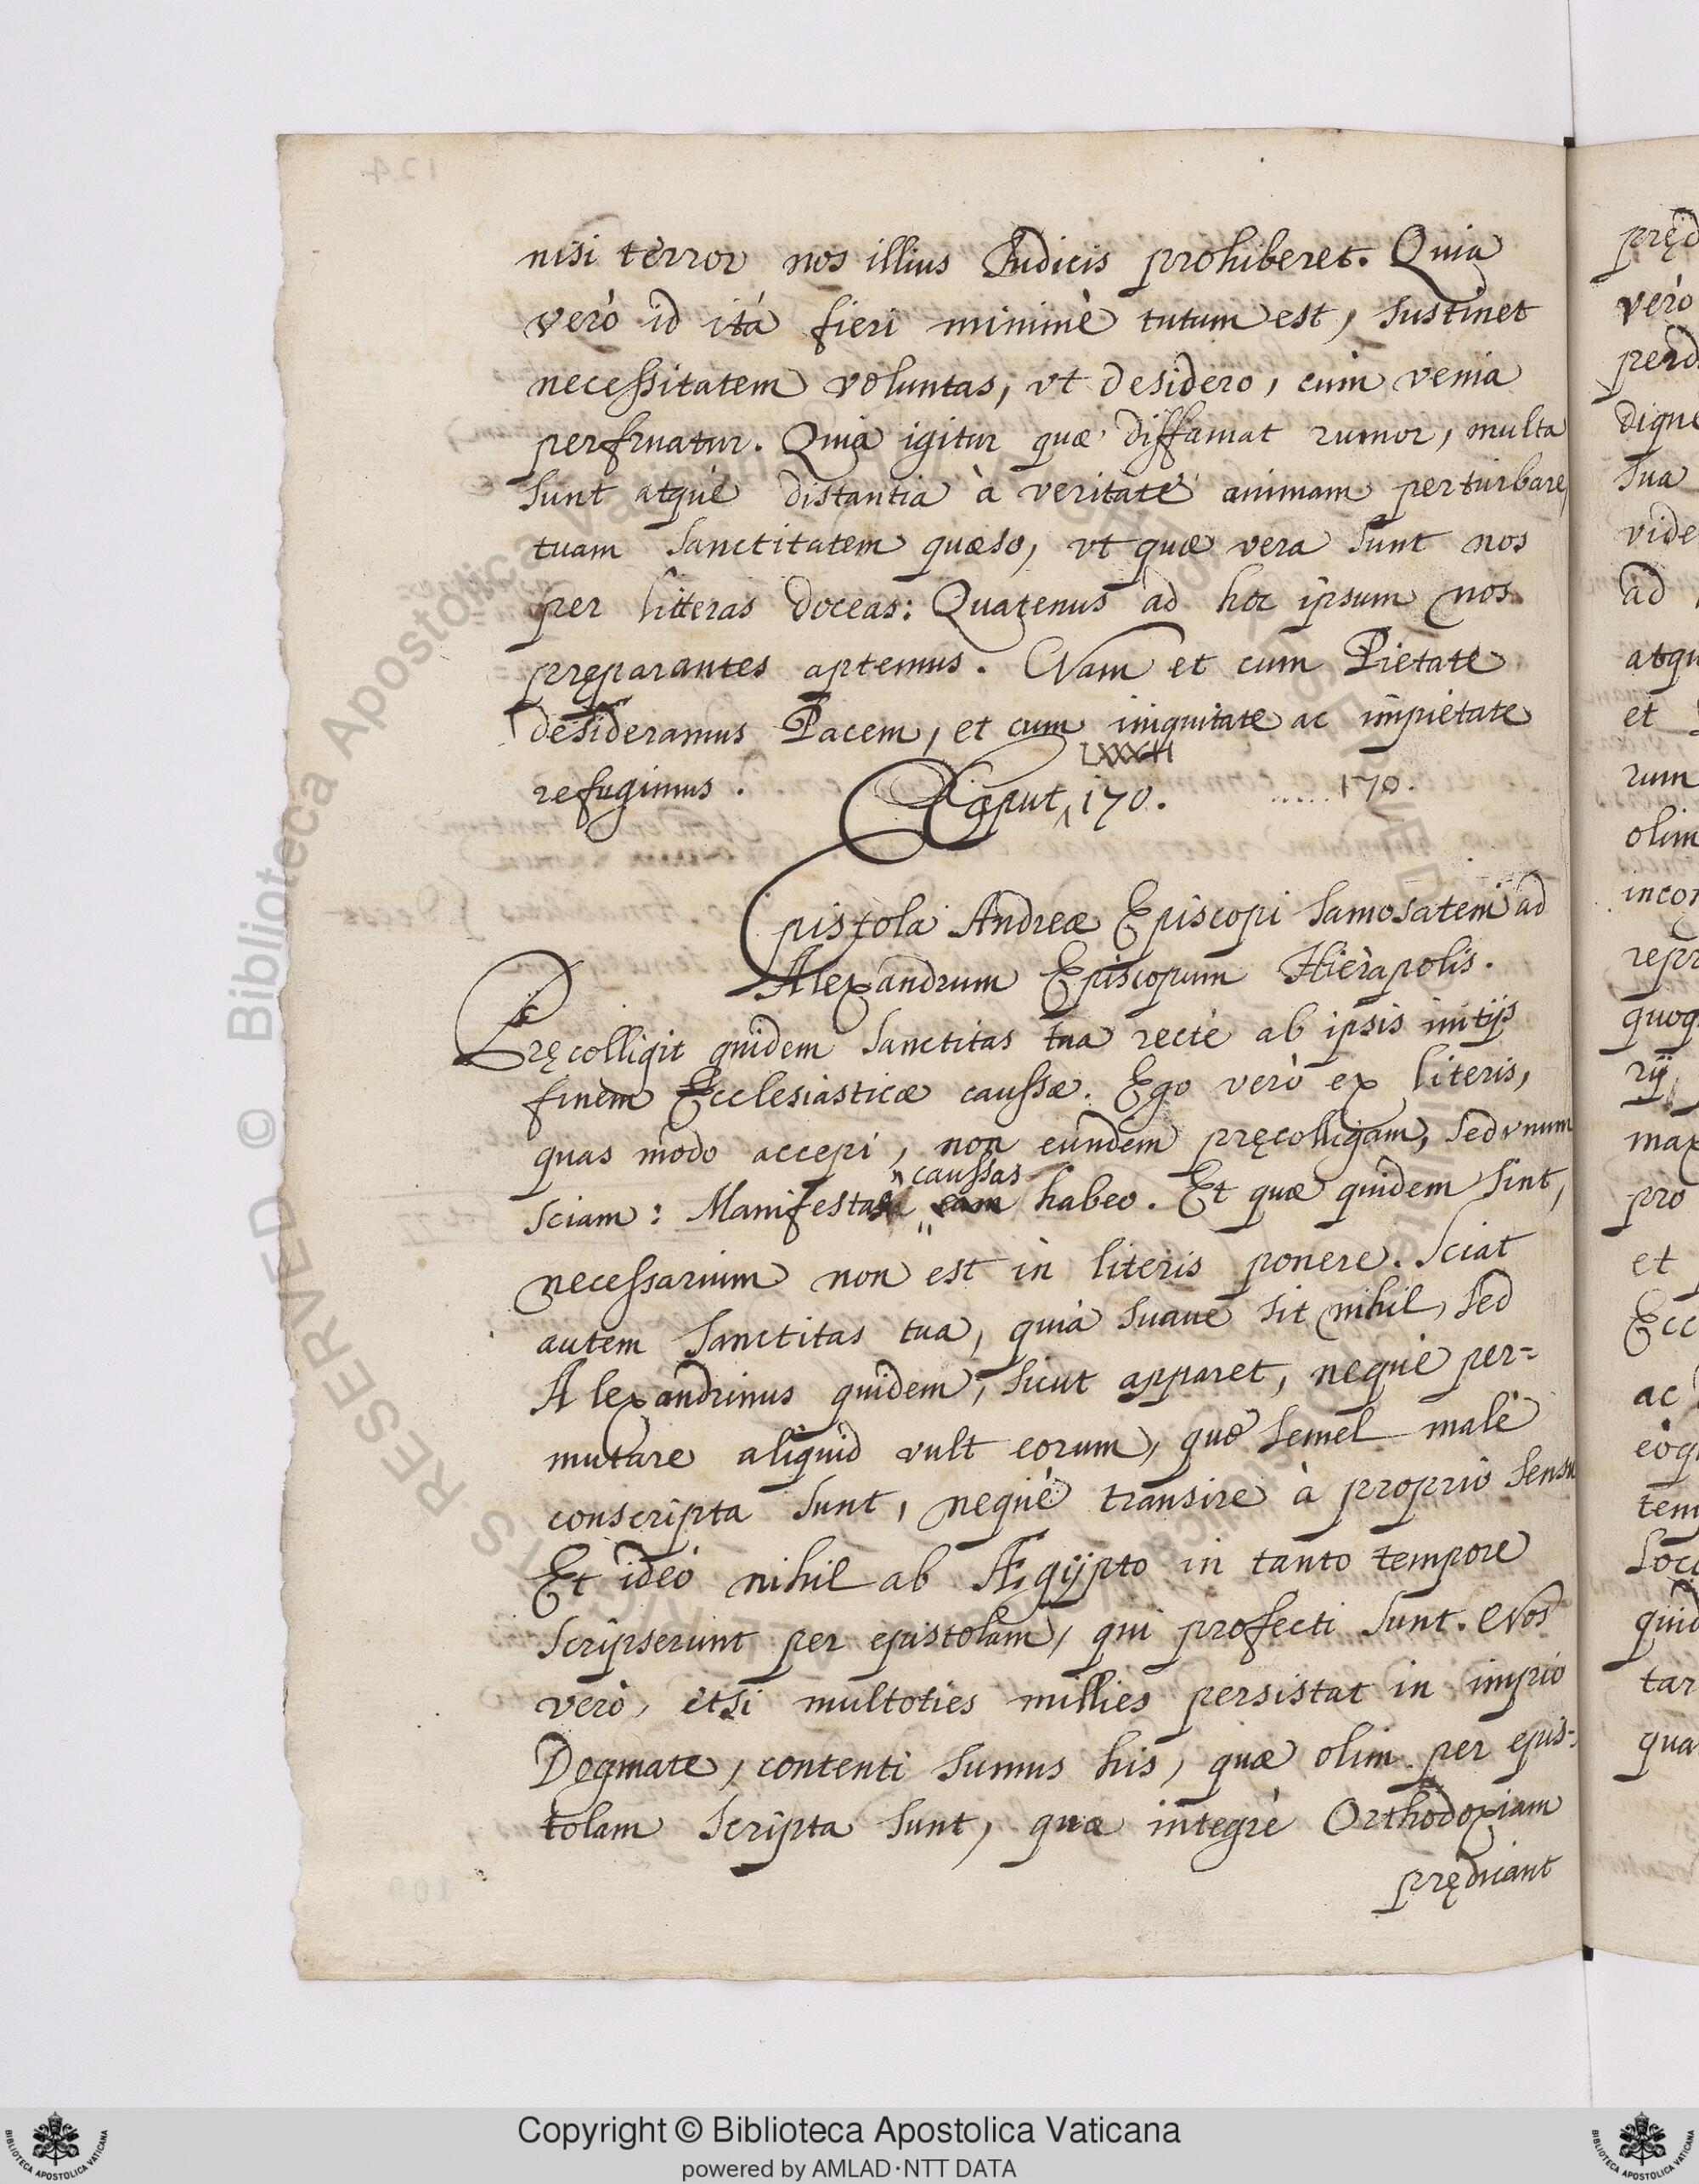 nisi terror nos illius Iudicis prohiberet. Quia
verò id itá fieri minimè tutum est, sustinet
necessitatem voluntas, vt desidero, cùm venia
perfruatur. Quia igitur quæ diffamat rumor, multa
sunt atque distantia à veritate animam perturbare,
tuam sanctitatem quæso, vt quæ vera sunt nos
per litteras doceas: Quatenus ad hoc ipsum nos
pręparantes aptemus. Nam et cum Pietate
desideramus Pacem, et cum iniquitate ac impietate
refugimus.
LXXXII
Caput 170. ..... 170.
Epistola Andreæ Episcopi Samosateni ad
Alexandrum Episcopum Hierapolis.
Pręcolligit quidem sanctitas tua recte ab ipsis initijs
finem Ecclesiasticæ caussæ. Ego verò ex literis,
quas modo accepi, non eundem pręcolligam, sed vnum
caussas
sciam: Manifestas eam habeo. Et quæ quidem sint,
necessarium non est in literis ponere. Sciat
autem sanctitas tua, quià suaue sit nihil, sed
Alexandrinus quidem, sicut apparet, neque per=
mutare aliquid vult eorum, quæ semel malè
conscripta sunt, nequè transire à proprio sensu
Et ideò nihil ab Ægypto in tanto tempore
scripserunt per epistolam, qui profecti sunt. Nos
verò, etsi multoties millies persistat in impio
Dogmate, contenti sumus his, quæ olim per epis=
tolam scripta sunt, quæ integrè Orthodoxiam
prędicant
pręd
verò
digne
sua
vide
ad
atqu
et
rum
olim
incon
repr
quoq
rij
max
pro
et
Ecc
ac
eòq
tem
Soci
quid
tar
qua
© Biblioteca Apostolica Vaticana
ALL RIGHTS RESERVED
Copyright © Biblioteca Apostolica Vaticana
powered by AMLAD·NTT DATA
BIBLIOTECA APOSTOLICA VATICANA
BIBLIOTECA APOSTOLICA VATICANA